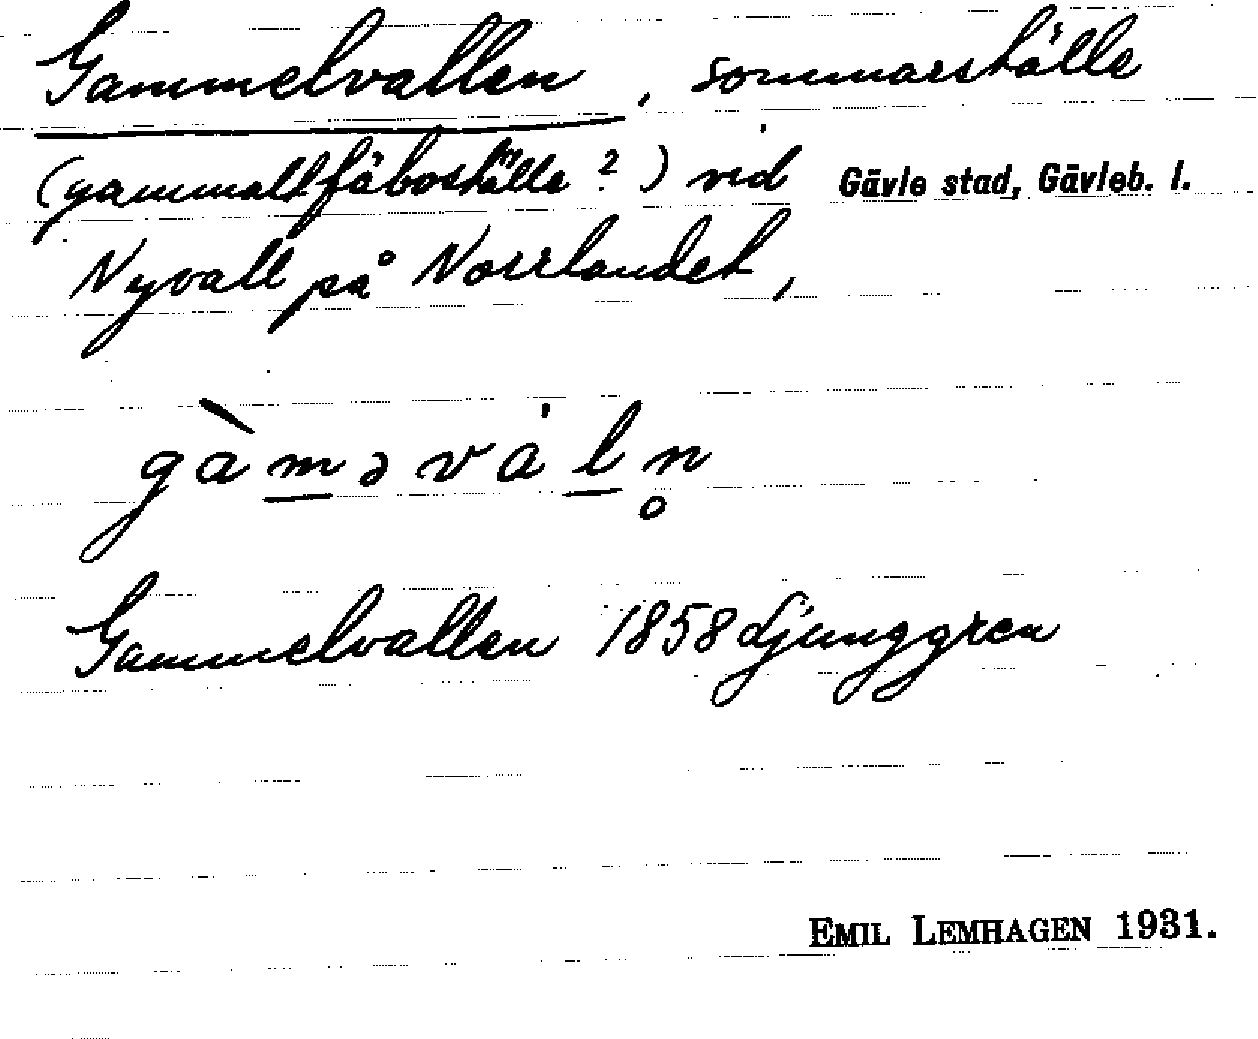 Gammelvallen, sommarställe
(gammalt fäboställe?) vid Gävle stad, Gävleb. l.
Nyvall på Norrlandet,
gàməvál̥n
Gammelvallen 1858 Ljunggren
EMIL LEMHAGEN 1931.